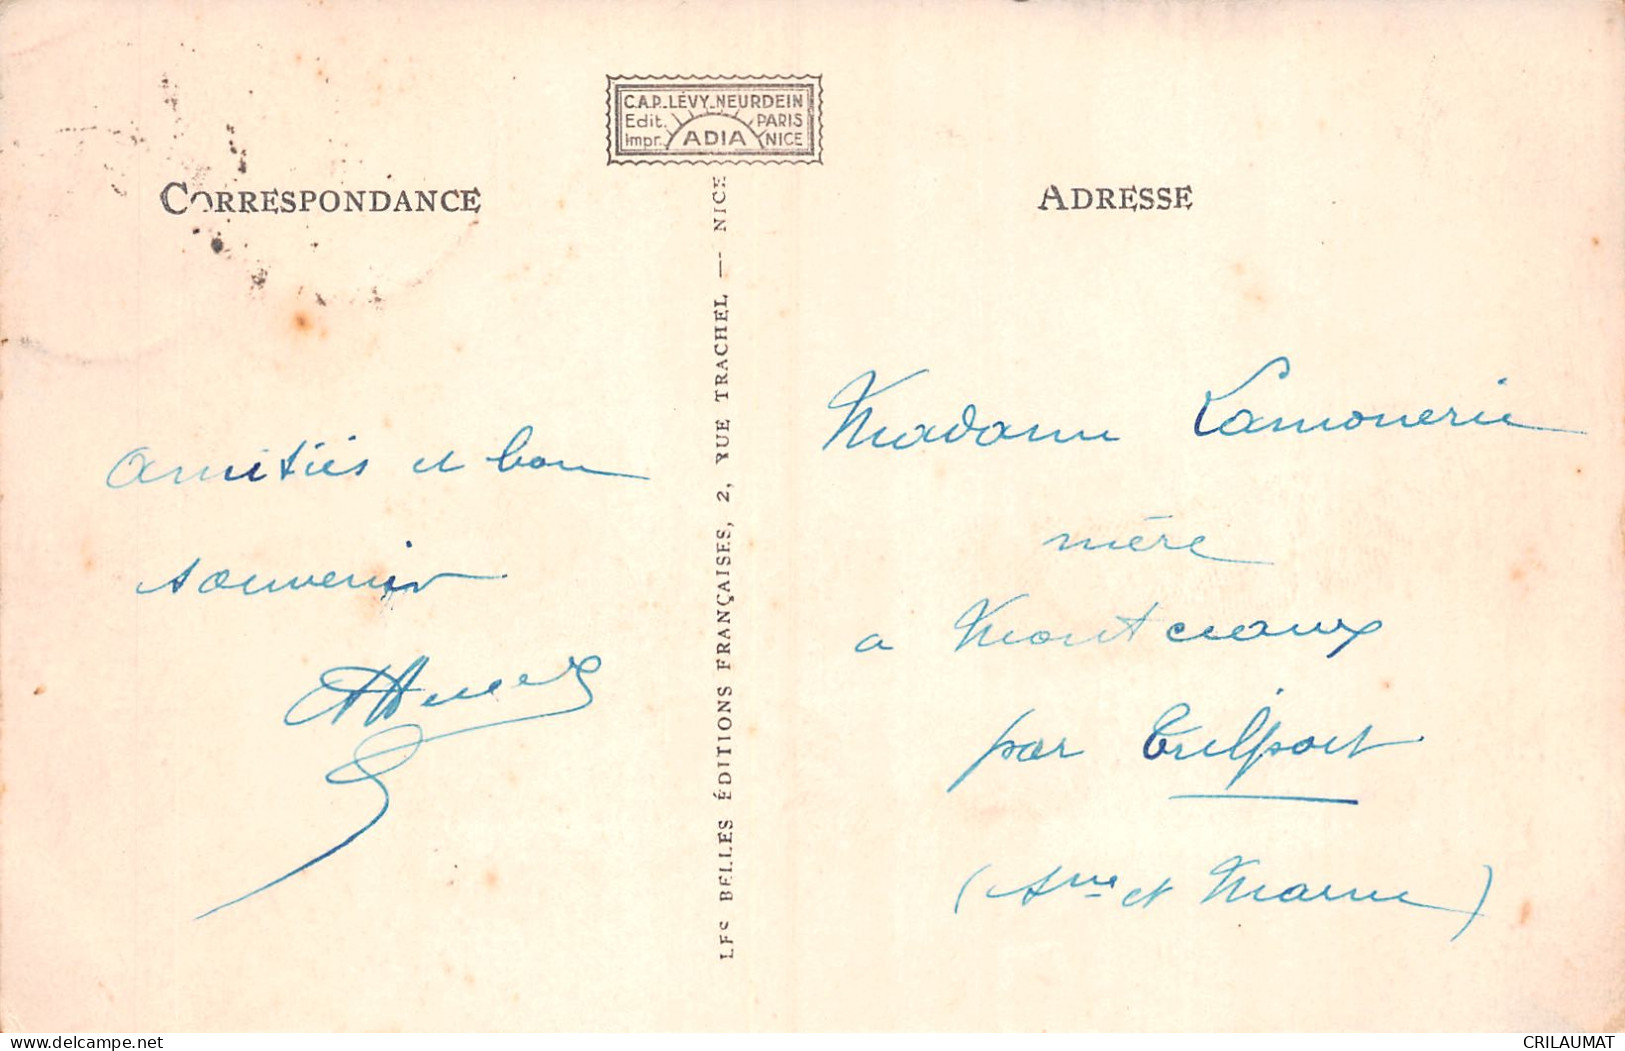 C.A.P. LÉVY-NEURDEIN
Edit. PARIS
Impr. ADIA NICE
CORRESPONDANCE
Amitiés et bon
souvenir
LES BELLES ÉDITIONS FRANÇAISES, 2, RUE TRACHEL — NICE
ADRESSE
Madame Lamonerie
mère
a Montceaux
par Trilport
(Sne et Marne)
delcampe.net
CRILAUMAT